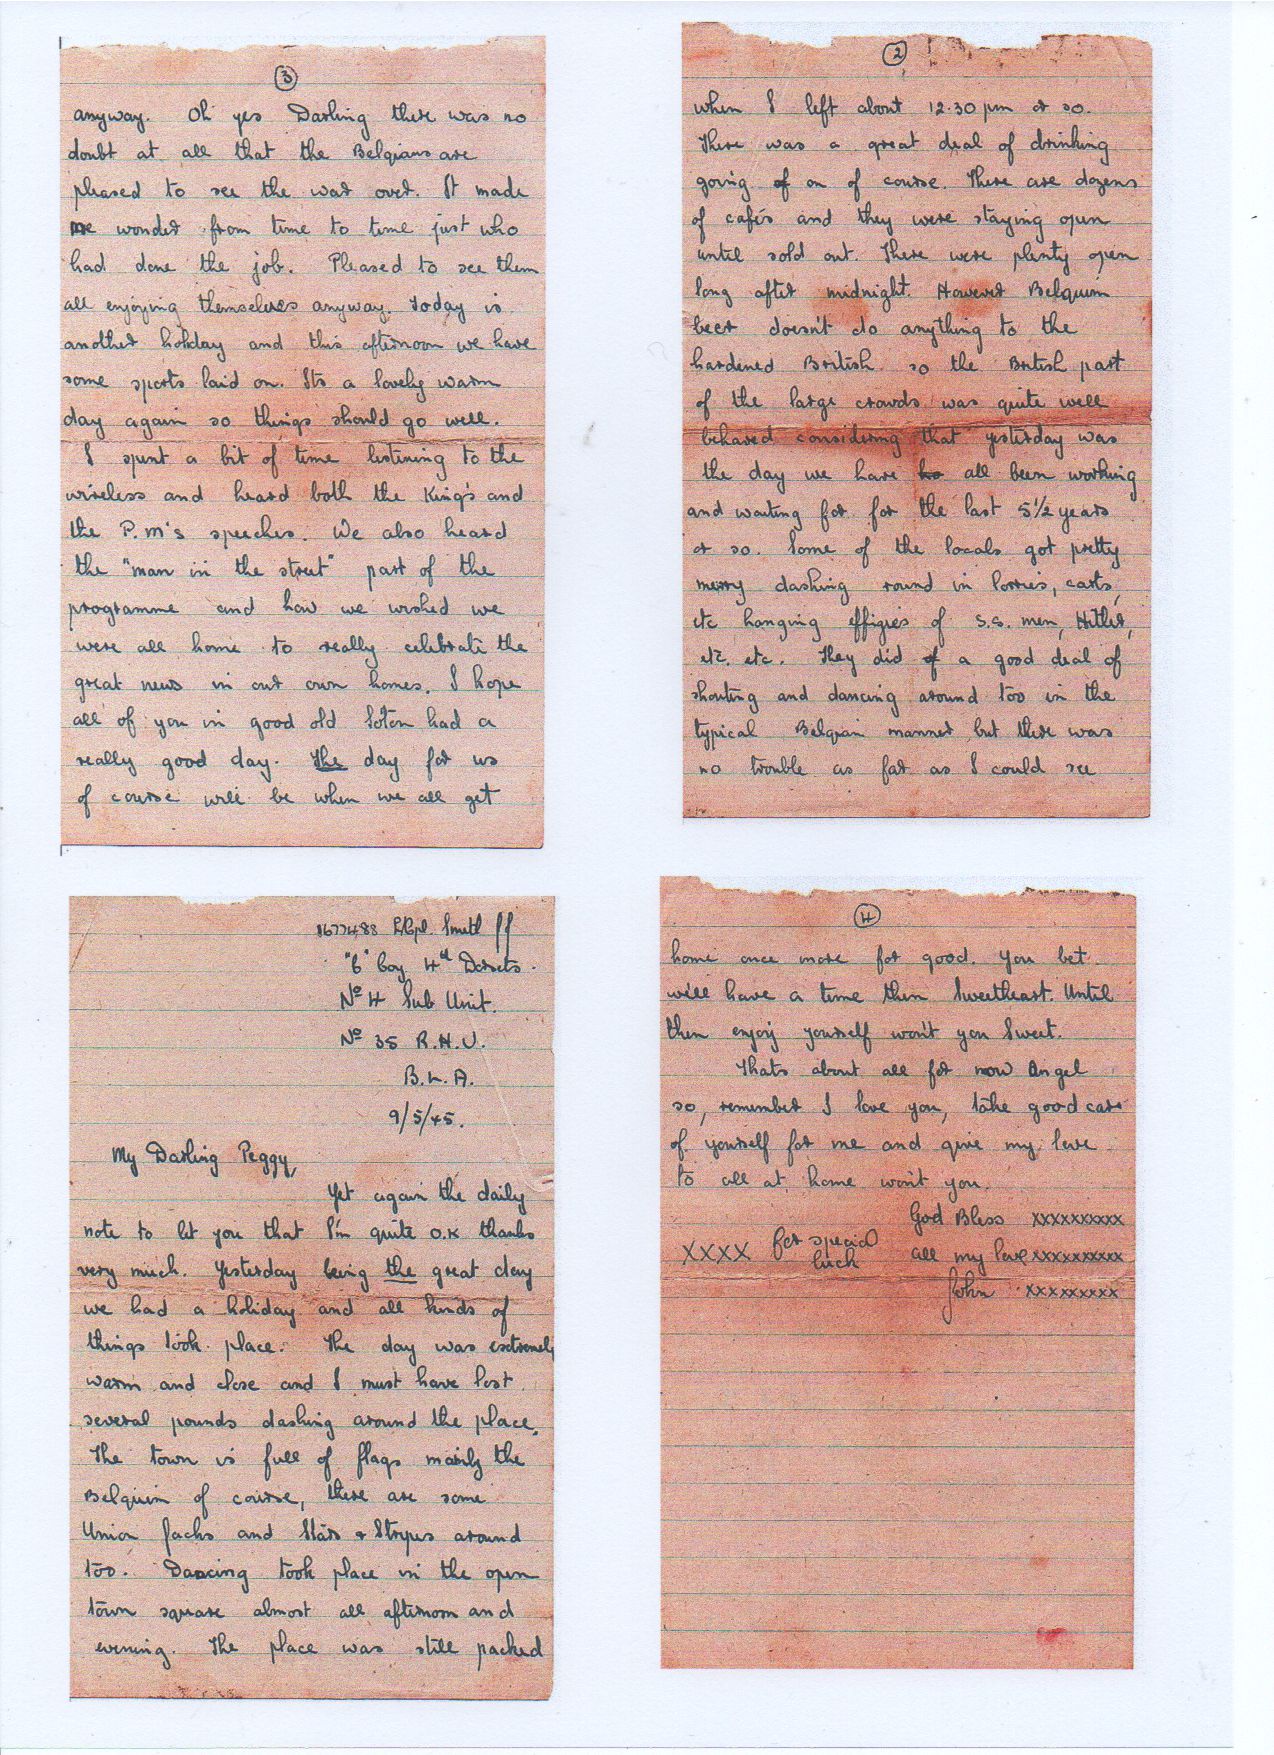 1677488 L/Cpl. Smith
"C" Coy 4th Dorsets.
No 4 Sub Unit.
No 35 R.H.U.
B.L.A.
9/5/45.
My Darling Peggy,
Yet again the daily
note to let you that I'm quite O.K thanks
very much. Yesterday being the great day
we had a holiday and all kinds of
things took place. The day was extremely
warm and close and I must have lost
several pounds dashing around the place.
The town is full of flags mainly the
Belguim of course, there are some
Union Jacks and Stars & Stripes around
too. Dancing took place in the open
town square almost all afternoon and
evening. The place was still packed
2
when I left about 12.30 pm or so.
There was a great deal of drinking
going of on of course. There are dozens
of cafés and they were staying open
until sold out. There were plenty open
long after midnight. However Belguim
beer doesn't do anything to the
hardened British so the British part
of the large crowds was quite well
behaved considering that yesterday was
the day we have ho all been working
and waiting for for the last 5 1/2 years
or so. Some of the locals got pretty
merry dashing round in lorries, carts,
etc hanging effigies of S.S. men, Hitler,
etc. etc. They did of a good deal of
shouting and dancing around too in the
typical Belgian manner but there was
no trouble as far as I could see
3
anyway. Oh yes Darling there was no
doubt at all that the Belgians are
pleased to see the war over. It made
me wonder from time to time just who
had done the job. Pleased to see them
all enjoying themselves anyway. Today is
another holiday and this afternoon we have
some sports laid on. Its a lovely warm
day again so things should go well.
I spent a bit of time listening to the
wireless and heard both the King's and
the P.M's speeches. We also heard
the "man in the street" part of the
programme and how we wished we
were all home to really celebrate the
great news in our own homes. I hope
all of you in good old Soton had a
really good day. The day for us
of course will be when we all get
4
home once more for good. You bet
will have a time then Sweetheart. Until
then enjoy yourself won't you Sweet.
Thats about all for now Angel
so, remember I love you, take good care
of yourself for me and give my love
to all at home won't you.
God Bless xxxxxxxxxx
XXXX for special luck all my love xxxxxxxxxx
John xxxxxxxxx